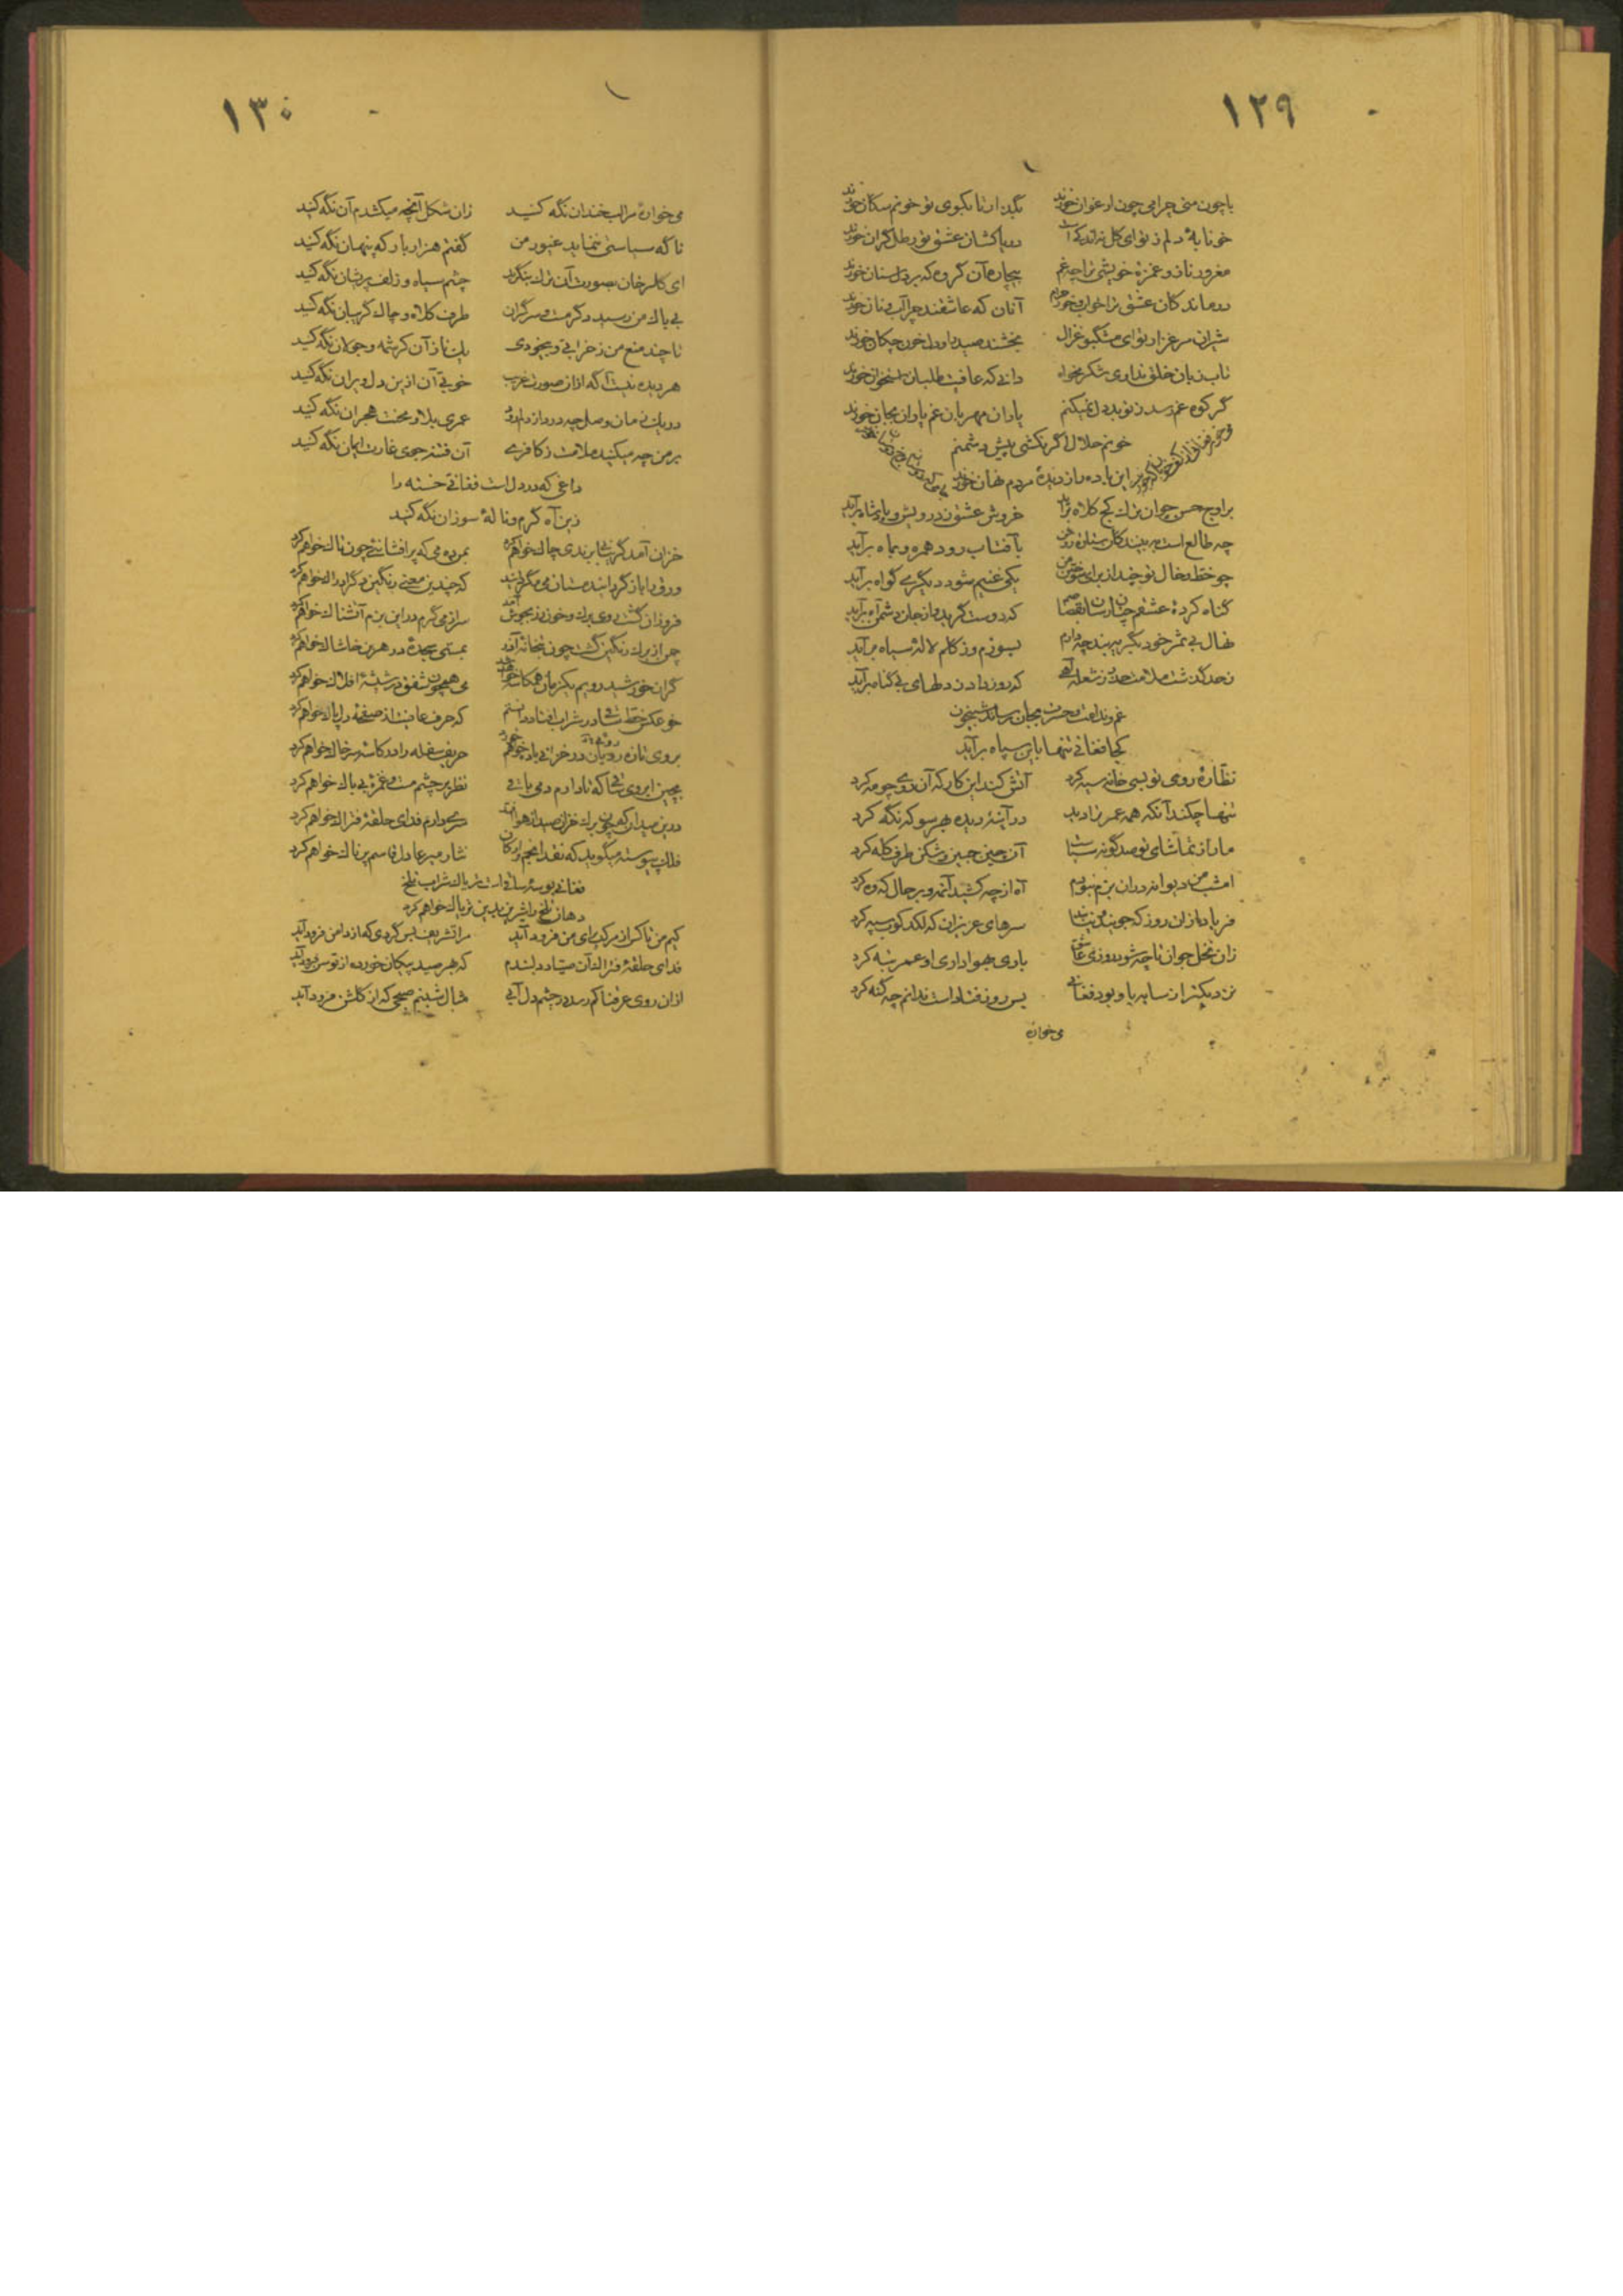 ۱۲۹
با چون منی چرا می چون ارغوان خورند بگذار تا بکوی تو خونم سگان خورند
خونابهٔ دلم ز تو ای گل
مغرور ناز و غمزهٔ خویشی ترا چه غم بیچاره آن گروه که بر دل سنان خورند
درماندگان عشق ترا خواب و خور حرام آنان که عاشقند چرا آب و نان خورند
شیران مرغزار تو ای مشگبو غزال بخشند صید و از دل خون چکان خورند
تاب زبان خلق نداری شکر مخواه دانی که عافیت طلبان استخوان خورند
گر کوه غم رسد ز تو بد دل نمیکنم یاران مهربان غم یاران بجان خورند
خونم حلال اگر نکشی پیش دشمنم
این باده را ز دیدهٔ مردم نهان خورند
بر اوج حسن چو آن ترک کج کلاه برآید خروش عشق ز درویش و پادشاه برآید
چه طالع است ببینید کان ستاره روشن با آفتاب رود همره و بماه برآید
چو خط و خال تو چیند از برای یکی غنیم شود دیگری گواه برآید
گناه کردهٔ عشقم چنان رسان که دوست گرید و از جان دشمن آه برآید
نهال بی ثمر خود دگر ببند چه دارم بسوزم و ز گلم لالهٔ سیاه برآید
ز حد گذشت ملامت که دود از دلهای بی گناه برآید
غم و ندامت و حسرت بجان رساند شبیخون
کجا فغانی تنها باین سپاه برآید
نظارهٔ روی تو بسی خانه سیه کرد آتش کند این کار که آن روی چو مه کرد
تنها چکند آنکه همه عمر ترا دید در آینهٔ دیده بهر سو که نگه کرد
ما را ز تماشای تو صد گونه آن چین جبین و شکن طرف کله کرد
امشب من دیوانه در آن بزم نبودم آه از چه کشید آنمه و بر حال که وه کرد
فریاد از آن روز که سرهای عزیزان که لگد کوب سپه کرد
زان نخل جوان تا چه شود روزی عاشق باری بهواداری او عمر تبه کرد
نزدیکتر از سایه باو بود فغانی بس روز فتاد است ندانم چه گنه کرد
می خواره
۱۳۰
می خواره مرا لب خندان نگه کنید زان شکل آنچه میکشدم آن نگه کنید
تا گه سیاستی ننماید غیور من گفتم هزار بار که پنهان نگه کنید
ای گلرخان بصورت آن ترک بنگرید چشم سیاه و زلف پریشان نگه کنید
بی باک من رسید دگر مست و سرگران طرف کلاه و چاک گریبان نگه کنید
تا چند منع من ز خرابی و بیخودی یک ناز آن کرشمه و جولان نگه کنید
هر دیده نیست آگه از آن صورت غریب خوبی آن ازین دل ویران نگه کنید
در یک زمان وصل چه درد از دلم رود عمری بلا و محنت هجران نگه کنید
بر من چه میکنید ملامت ز کافری آن فتنه جوی غارت ایمان نگه کنید
داغی که در دل است فغانی خسته را
زین آه گرم و نالهٔ سوزان نگه کنید
خزان آمد گریبانی برندی چاک خواهم کرد بمن ده می که پر افشانئی چون تاک خواهم کرد
ورق را باز گردانید مستان می که چندین معنی رنگین دگر ادراک خواهم کرد
فروزان گشت روی برگ و خون رز بجوش آمد سر از می گرم در این بزم آتشناک خواهم کرد
چمن از برگ رنگین گشت چون بتخانهٔ آذر بمستی سجدهٔ در هر بن خاشاک خواهم کرد
گر آن خورشید رویم یکزمان همکاسه خواهد شد می همچون شفق در شیشهٔ افلاک خواهم کرد
چو عکس خط ساقی در شراب افتاد دانستم که حرف عافیت از صفحهٔ دل پاک خواهم کرد
بروی تازه رویان در خزان باده خواهم خورد حریف سفله را در کاسهٔ سر خاک خواهم کرد
بچین ابروی ساقی که تا دارم می باقی نظر بر چشم مست و غمزهٔ بی باک خواهم کرد
درین میدان که چون برگ خزان صید از هوا سری دارم فدای حلقهٔ فتراک خواهم کرد
فلک پیوسته میگوید که نقد انجم و ارکان نثار میر عادل قاسم پرناک خواهم کرد
فغانی بوسهٔ ساقی است تریاک شراب تلخ
دهان تلخ را شیرین بدین تریاک خواهم کرد
کیم من تا کس از مرکب برای من فرود آید مرا تشریف بس گردی که از دامن فرود آید
فدای حلقهٔ فتراک آن صیاد دلبندم که هر صید پیکان خورده از توسن فرود آید
از آن روی عرفناکم رسد در چشم دل آبی مثال شبنم صبحی که از گلشن فرود آید